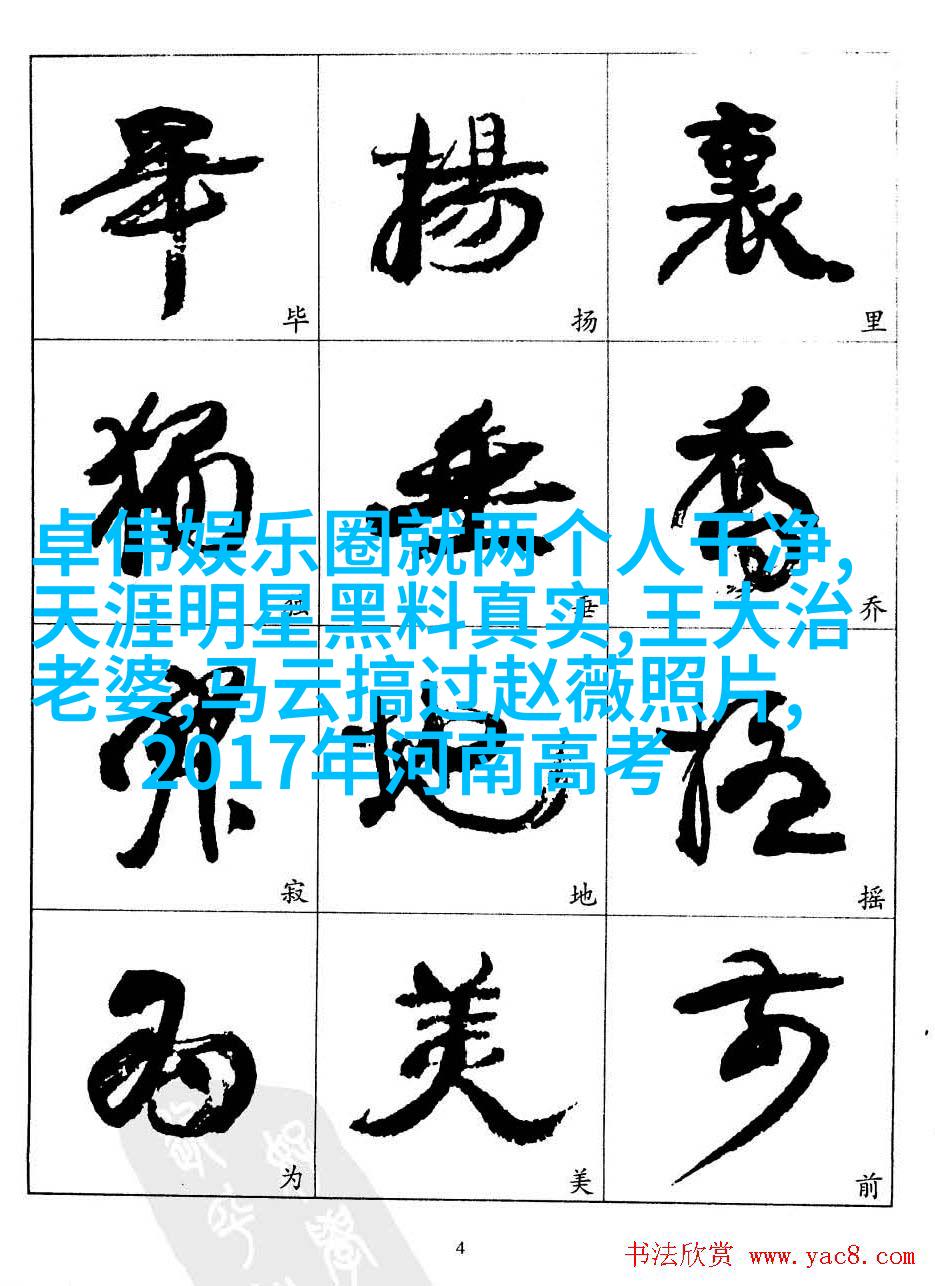 毕 扬 里
独 垂 乔
寂 地 摇
为 美 前
卓伟娱乐圈就两个人干净,
天涯明星黑料真实,王大治
老婆,马云搞过赵薇照片,
2017年河南高考
畢 揚 裏
獨 垂 喬
寂 地 摇
为 美 前
4
书法欣赏 www.yac8.com